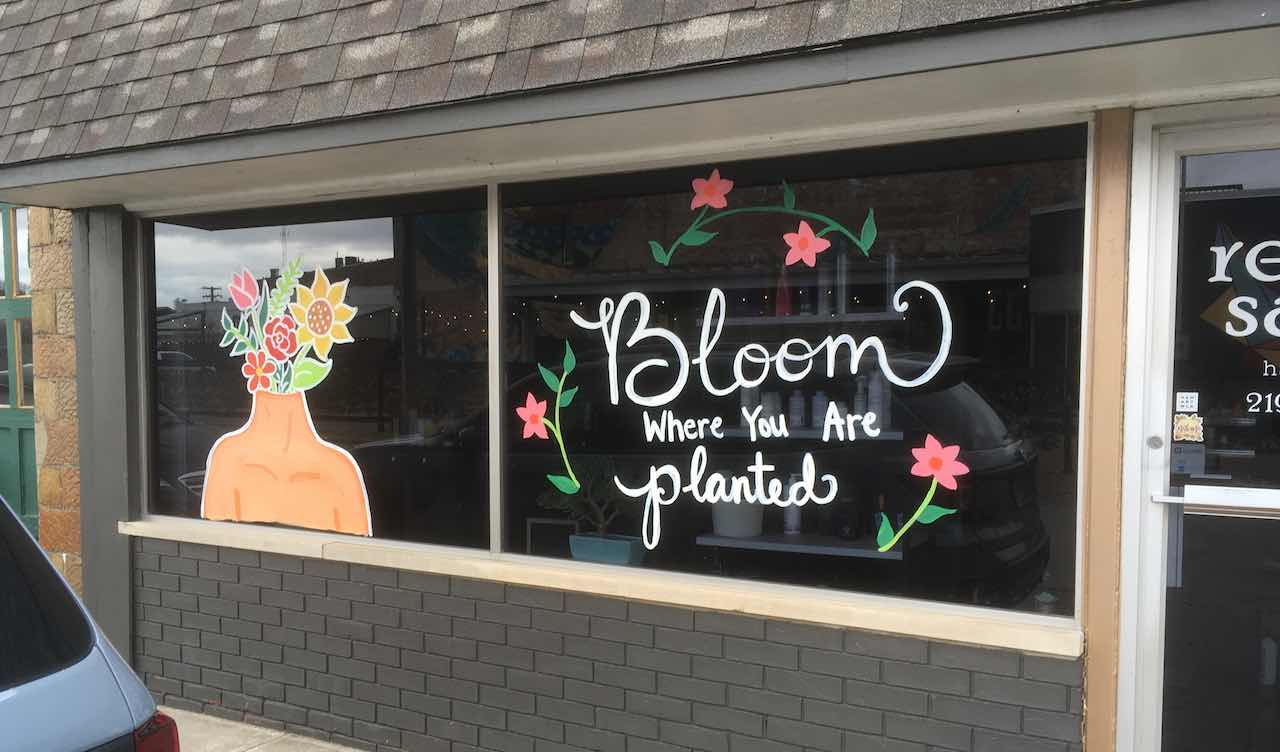 Bloom
Where You Are
planted
219